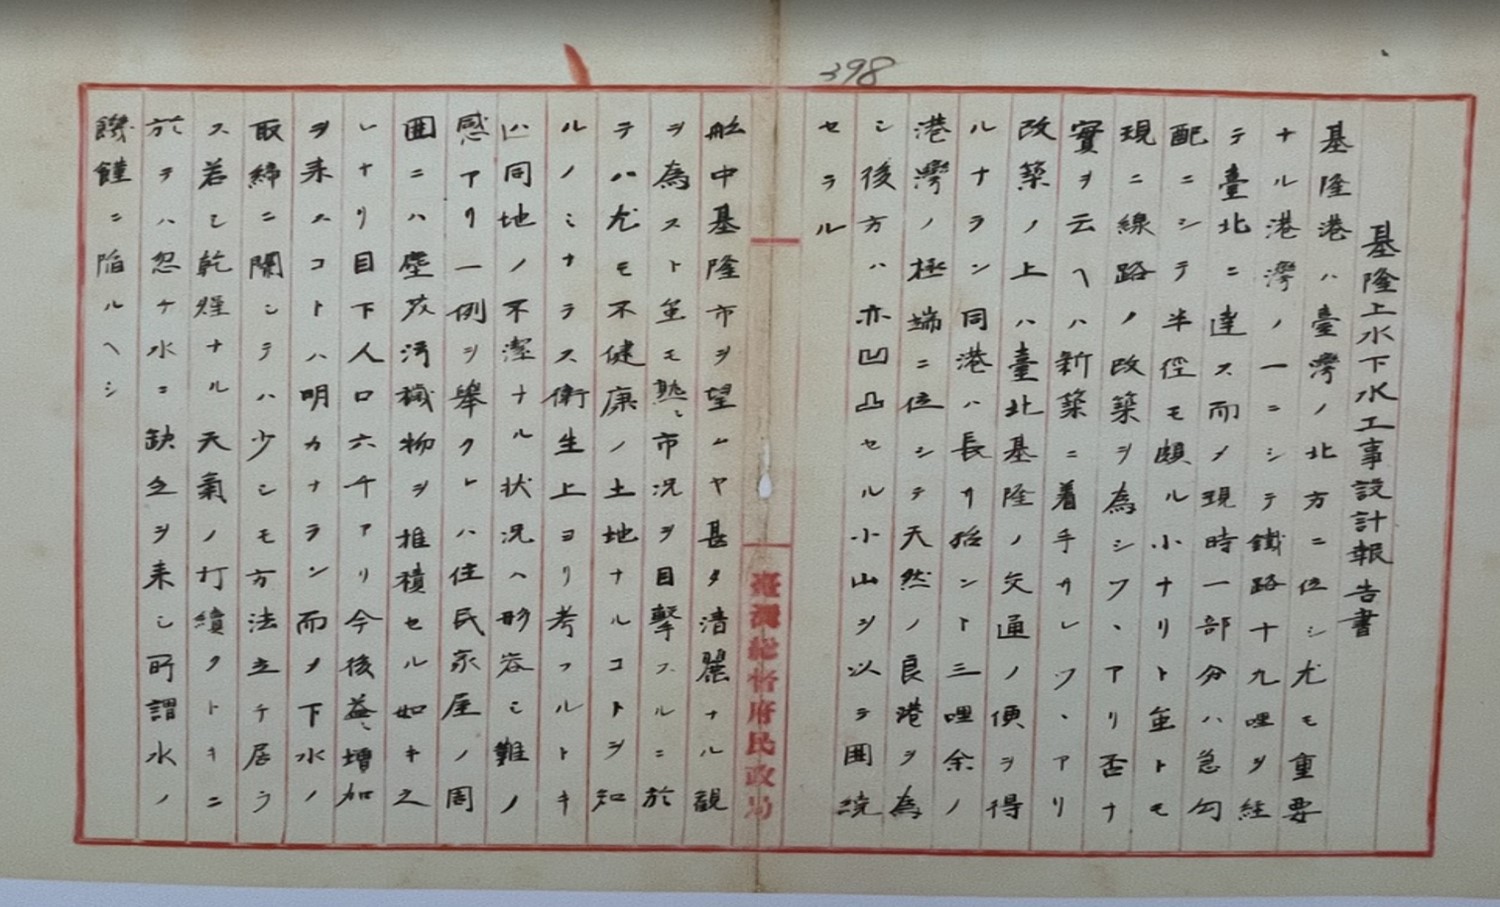 398
基隆上水下水工事設計報告書
基隆港ハ臺灣ノ北方ニ位シ尤モ重要
ナル港灣ノ一ニシテ鐵路十九哩ヲ経
テ臺北ニ達ス而メ現時一部分ハ急勾
配ニシテ半径モ頗ル小ナリト虽トモ
現ニ線路ノ改築ヲ為シツヽアリ否ナ
實ヲ云ヘハ新築ニ着手サレツヽアリ
改築ノ上ハ臺北基隆ノ交通ノ便ヲ得
ルナラン同港ハ長サ殆ント三哩余ノ
港灣ノ極端ニ位シテ天然ノ良港ヲ為
シ後方ハ亦凹凸セル小山ヲ以テ囲繞
セラル
臺灣総督府民政局
舩中基隆市ヲ望ムヤ甚タ清麗ナル観
ヲ為スト虽モ熟〻市况ヲ目撃スルニ於
テハ尤モ不健康ノ土地ナルコトヲ知
ルノミナラス衛生上ヨリ考フルトキ
ハ同地ノ不潔ナル状况ヘ形容シ難ノ
感アリ一例ヲ擧クレハ住民家屋ノ周
囲ニハ塵芥汚穢物ヲ堆積セル如キ之
レナリ目下人口六千アリ今後益〻増加
ヲ来スコトハ明カナラン而メ下水ノ
取締ニ関シテハ少シモ方法立チ居ラ
ス若シ乾燥ナル天氣ノ打續クトキニ
於テハ忽チ水ニ缺乏ヲ来シ所謂水ノ
饑饉ニ陥ルヘシ